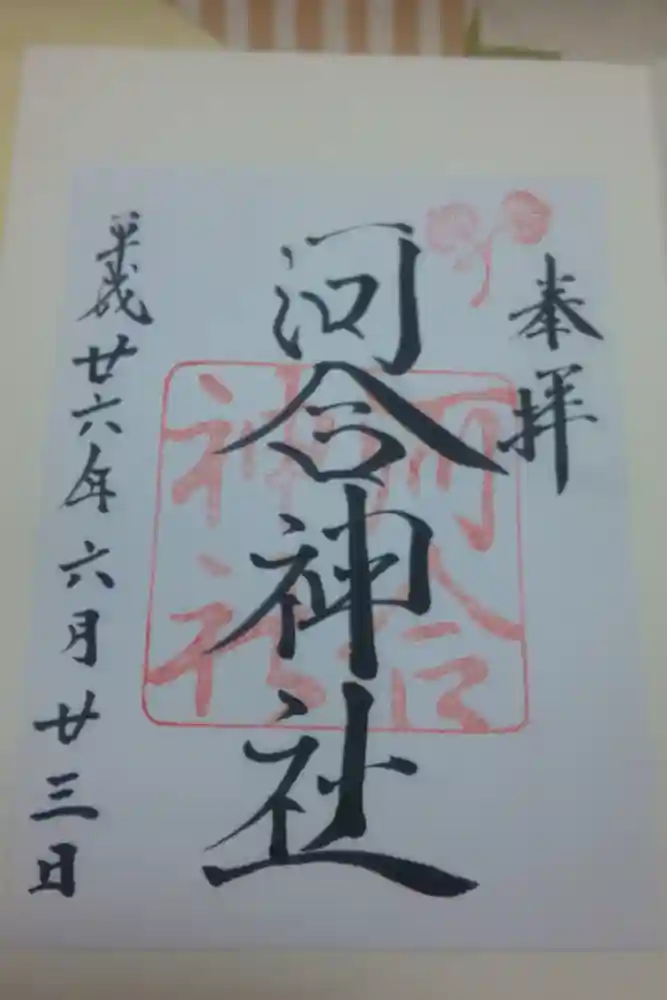 奉拝
河合神社
河合神社
平成廿六年六月廿三日